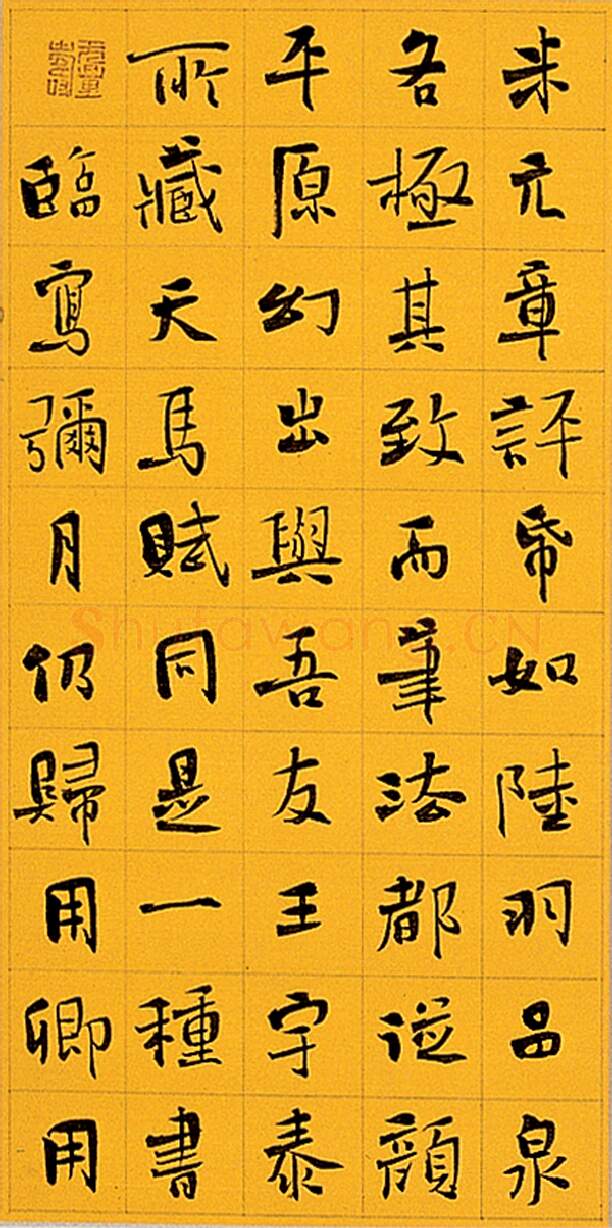 米元章評帋如陸羽品泉
各極其致而筆法都從顏
平原幻出與吾友王宇泰
所藏天馬賦同是一種書
臨寫彌月仍歸用卿用
Shufawang.CN